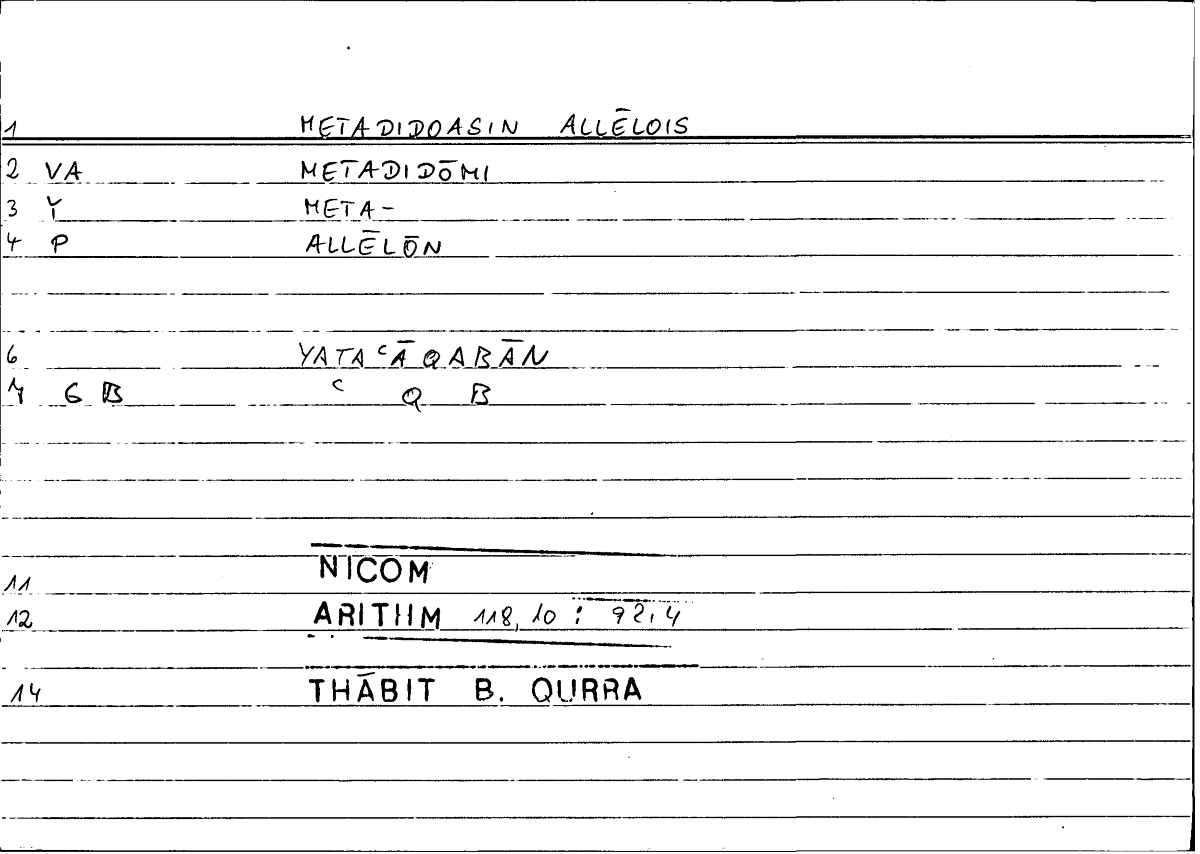 1 METADIDOASIN ALLĒLOIS
2 VA METADIDŌMI
3 Y META-
4 P ALLĒLŌN
6 YATAʿĀQABĀN
7 6 B ʿ Q B
11 NICOM
12 ARITHM 118,10 : 92,4
14 THĀBIT B. QURRA